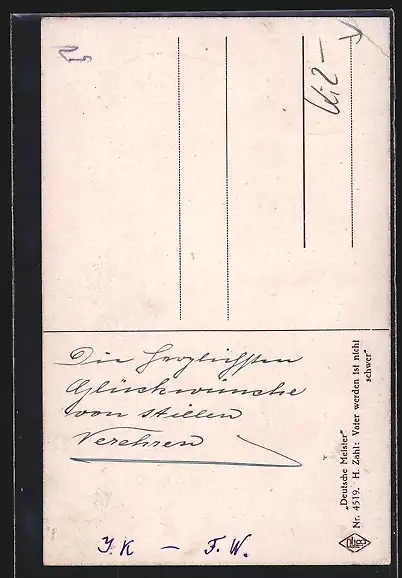 Die herzlichsten
Glückwünsche
von stillen
Verehren
JK — F. W.
„Deutsche Meister"
Nr. 4519. H. Zahl: Vater werden ist nicht
schwer"